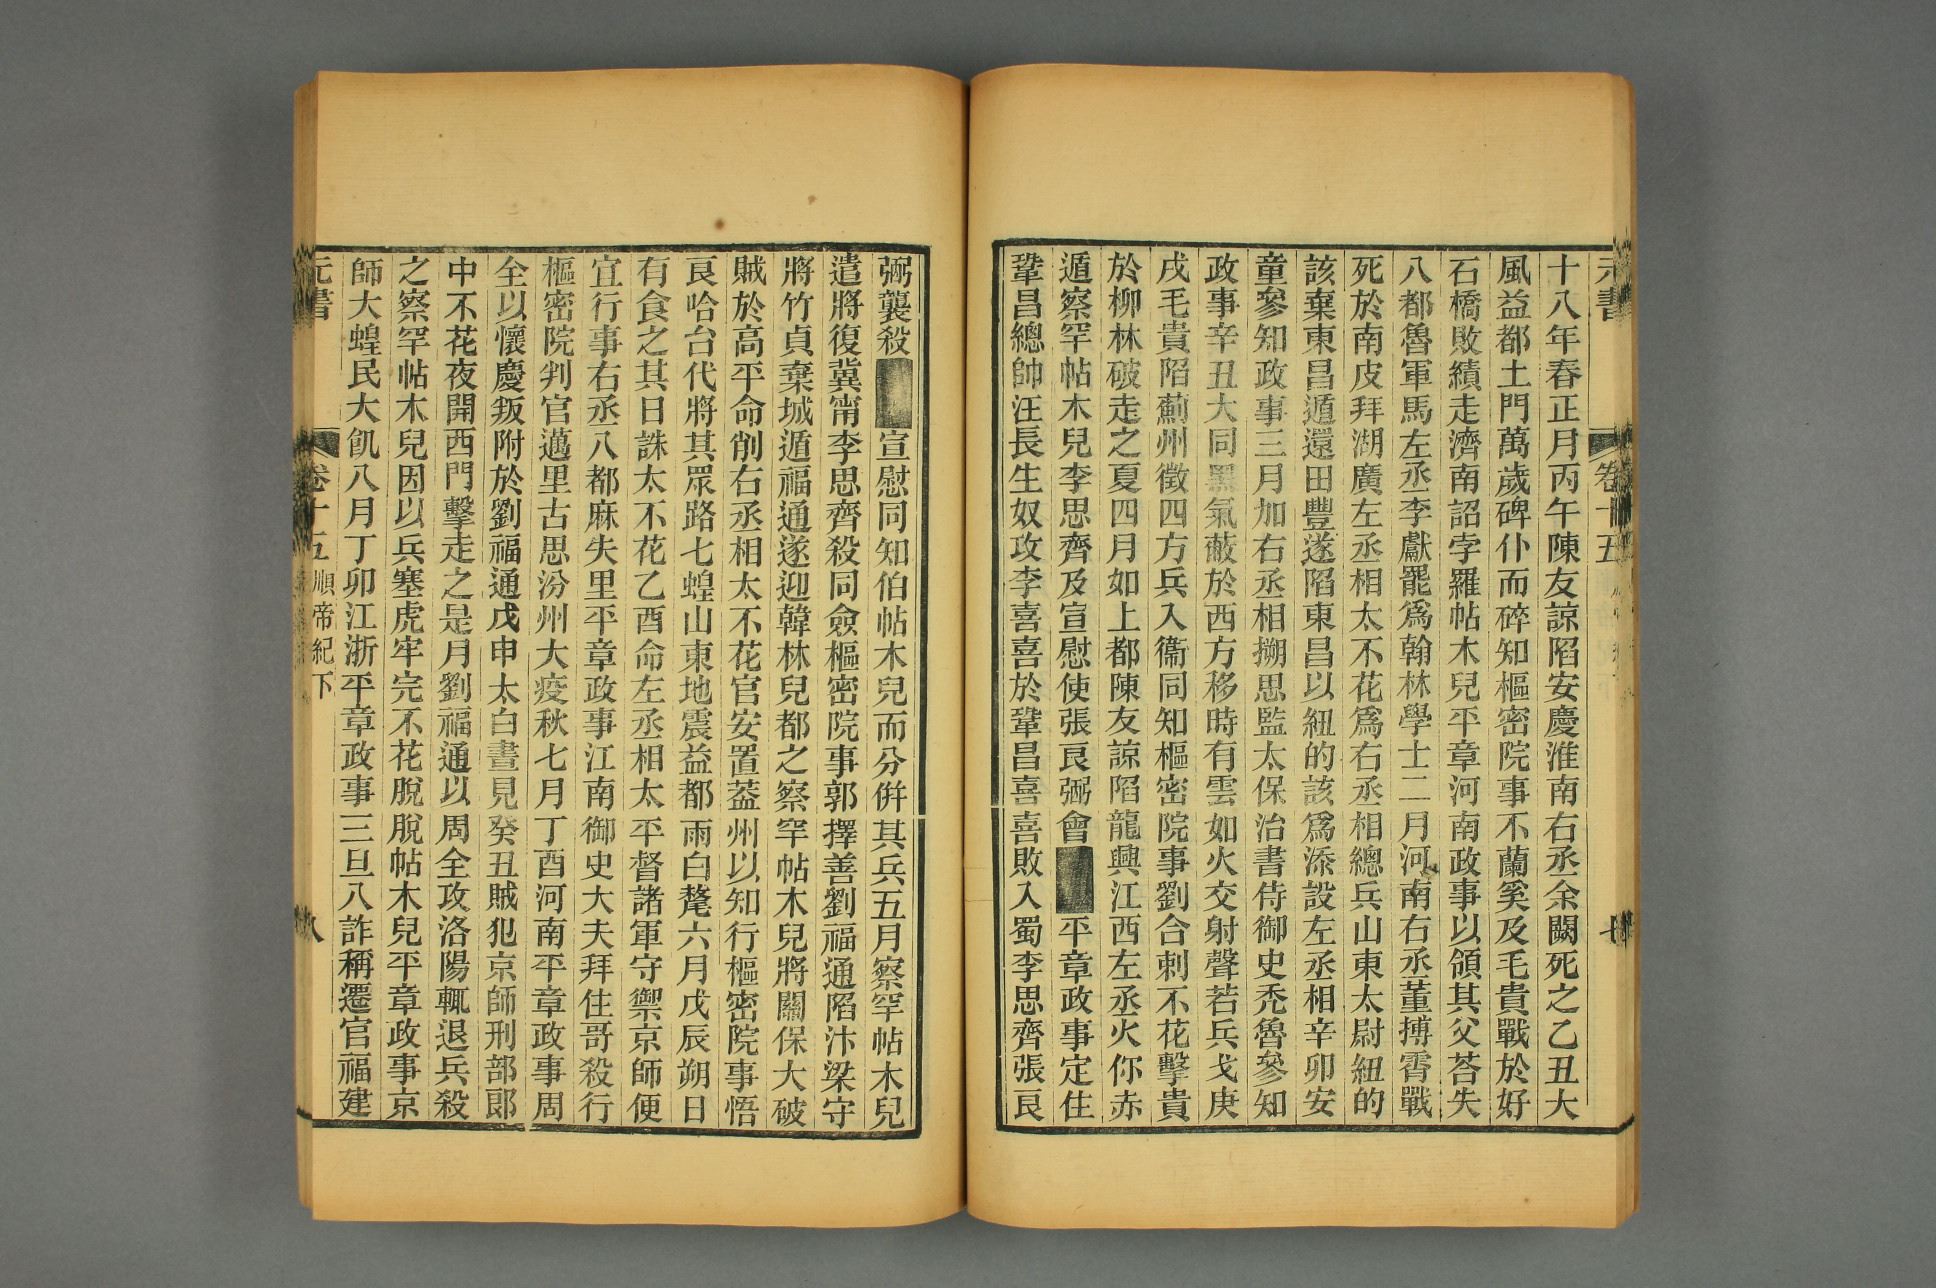 元書
卷十五
十八年春正月丙午陳友諒陷安慶淮南右丞余闕死之乙丑大
風益都土門萬歲碑仆而碎知樞密院事不蘭奚及毛貴戰於好
石橋敗績走濟南詔孛羅帖木兒平章河南政事以領其父荅失
八都魯軍馬左丞李獻罷爲翰林學士二月河南右丞董摶霄戰
死於南皮拜湖廣左丞相太不花爲右丞相總兵山東太尉紐的
該棄東昌遁還田豐遂陷東昌以紐的該爲添設左丞相辛卯安
童參知政事三月加右丞相搠思監太保治書侍御史禿魯參知
政事辛丑大同黑氣蔽於西方移時有雲如火交射聲若兵戈庚
戌毛貴陷薊州徵四方兵入衞同知樞密院事劉合剌不花擊貴
於柳林破走之夏四月如上都陳友諒陷龍興江西左丞火你赤
遁察罕帖木兒李思齊及宣慰使張良弼會平章政事定住
鞏昌總帥汪長生奴攻李喜喜於鞏昌喜喜敗入蜀李思齊張良
弼襲殺宣慰同知伯帖木兒而分併其兵五月察罕帖木兒
遣將復冀甯李思齊殺同僉樞密院事郭擇善劉福通陷汴梁守
將竹貞棄城遁福通遂迎韓林兒都之察罕帖木兒將關保大破
賊於高平命削右丞相太不花官安置葢州以知行樞密院事悟
良哈台代將其眾路七蝗山東地震益都雨白氂六月戊辰朔日
有食之其日誅太不花乙酉命左丞相太平督諸軍守禦京師便
宜行事右丞八都麻失里平章政事江南御史大夫拜住哥殺行
樞密院判官邁里古思汾州大疫秋七月丁酉河南平章政事周
全以懷慶叛附於劉福通戊申太白晝見癸丑賊犯京師刑部郎
中不花夜開西門擊走之是月劉福通以周全攻洛陽輒退兵殺
之察罕帖木兒因以兵塞虎牢完不花脫脫帖木兒平章政事京
師大蝗民大飢八月丁卯江浙平章政事三旦八詐稱遷官福建
元書
卷十五 順帝紀下
八